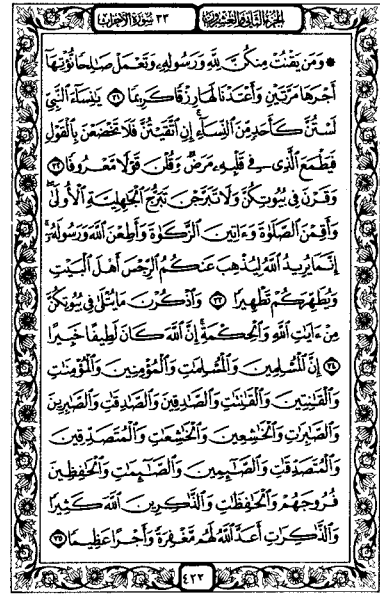 الجزء الثاني والعشرون
٣٣ سورة الأحزاب
۞ وَمَن يَقْنُتْ مِنكُنَّ لِلَّهِ وَرَسُولِهِ وَتَعْمَلْ صَالِحًا نُّؤْتِهَا
أَجْرَهَا مَرَّتَيْنِ وَأَعْتَدْنَا لَهَا رِزْقًا كَرِيمًا ٣١ يَٰنِسَاءَ ٱلنَّبِيِّ
لَسْتُنَّ كَأَحَدٍ مِّنَ ٱلنِّسَاءِ إِنِ ٱتَّقَيْتُنَّ فَلَا تَخْضَعْنَ بِٱلْقَوْلِ
فَيَطْمَعَ ٱلَّذِى فِى قَلْبِهِ مَرَضٌ وَقُلْنَ قَوْلًا مَّعْرُوفًا ٣٢
وَقَرْنَ فِى بُيُوتِكُنَّ وَلَا تَبَرَّجْنَ تَبَرُّجَ ٱلْجَٰهِلِيَّةِ ٱلْأُولَىٰ
وَأَقِمْنَ ٱلصَّلَوٰةَ وَءَاتِينَ ٱلزَّكَوٰةَ وَأَطِعْنَ ٱللَّهَ وَرَسُولَهُ
إِنَّمَا يُرِيدُ ٱللَّهُ لِيُذْهِبَ عَنكُمُ ٱلرِّجْسَ أَهْلَ ٱلْبَيْتِ
وَيُطَهِّرَكُمْ تَطْهِيرًا ٣٣ وَٱذْكُرْنَ مَا يُتْلَىٰ فِى بُيُوتِكُنَّ
مِنْ ءَايَٰتِ ٱللَّهِ وَٱلْحِكْمَةِ إِنَّ ٱللَّهَ كَانَ لَطِيفًا خَبِيرًا
٣٤ إِنَّ ٱلْمُسْلِمِينَ وَٱلْمُسْلِمَٰتِ وَٱلْمُؤْمِنِينَ وَٱلْمُؤْمِنَٰتِ
وَٱلْقَٰنِتِينَ وَٱلْقَٰنِتَٰتِ وَٱلصَّٰدِقِينَ وَٱلصَّٰدِقَٰتِ وَٱلصَّٰبِرِينَ
وَٱلصَّٰبِرَٰتِ وَٱلْخَٰشِعِينَ وَٱلْخَٰشِعَٰتِ وَٱلْمُتَصَدِّقِينَ
وَٱلْمُتَصَدِّقَٰتِ وَٱلصَّٰئِمِينَ وَٱلصَّٰئِمَٰتِ وَٱلْحَٰفِظِينَ
فُرُوجَهُمْ وَٱلْحَٰفِظَٰتِ وَٱلذَّٰكِرِينَ ٱللَّهَ كَثِيرًا
وَٱلذَّٰكِرَٰتِ أَعَدَّ ٱللَّهُ لَهُم مَّغْفِرَةً وَأَجْرًا عَظِيمًا ٣٥
٤٢٢